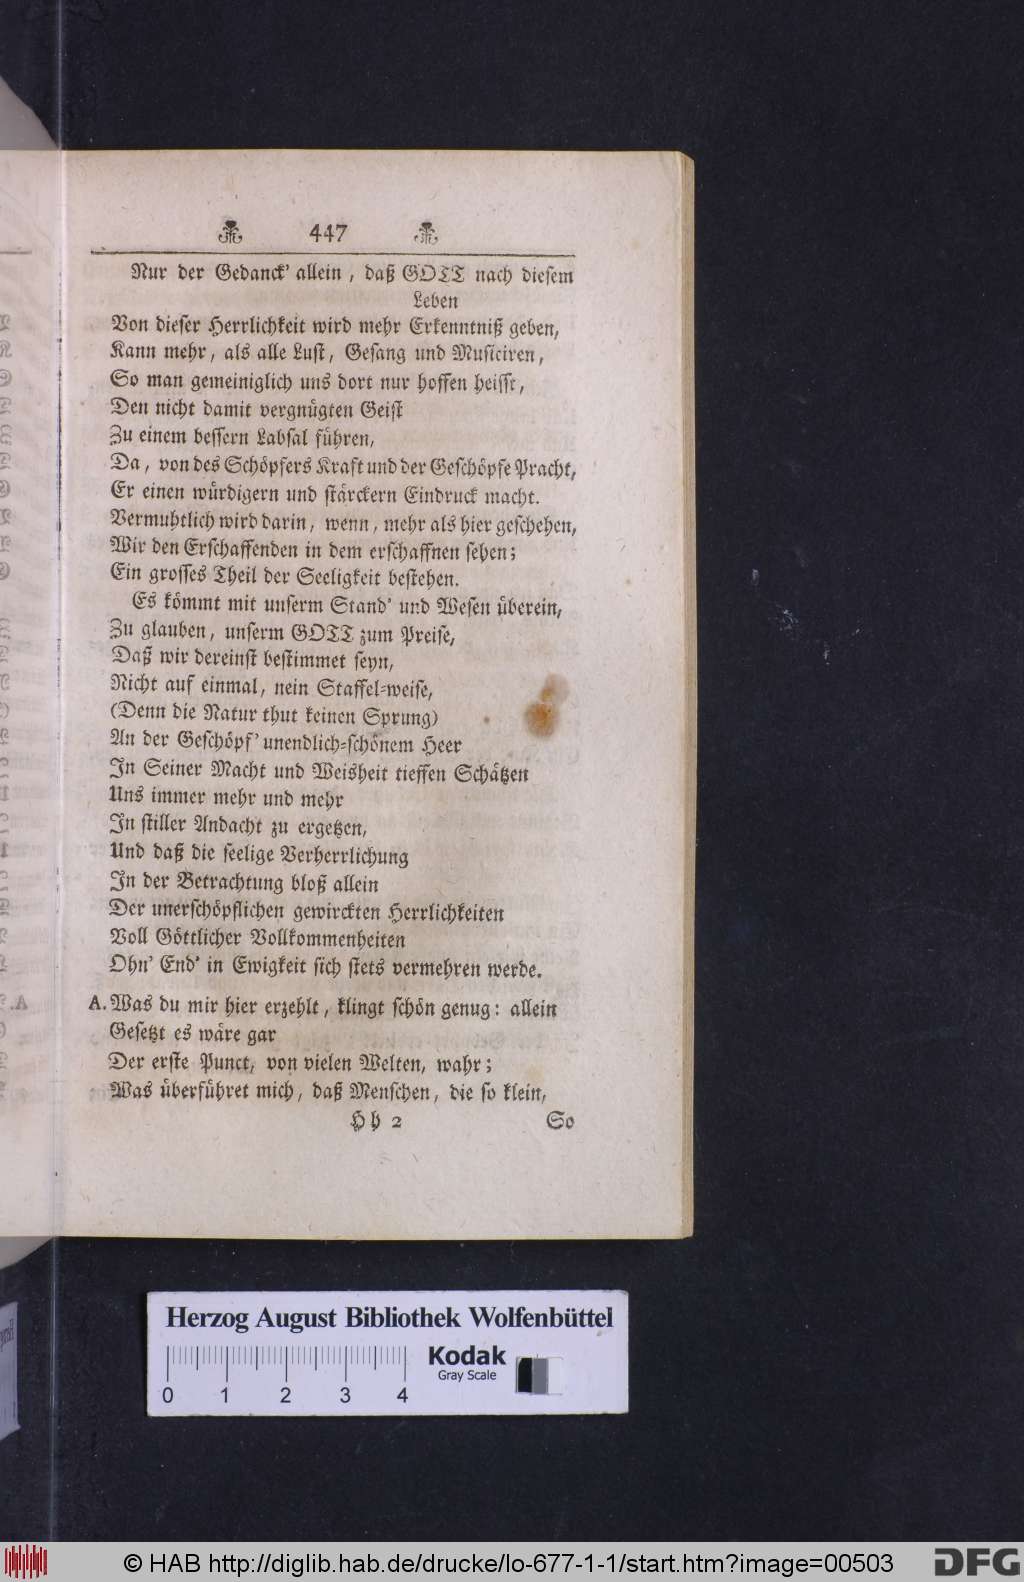 447
Nur der Gedanck' allein, daß GOTT nach diesem
Leben
Von dieser Herrlichkeit wird mehr Erkenntniß geben,
Kann mehr, als alle Lust, Gesang und Musiciren,
So man gemeiniglich uns dort nur hoffen heisst,
Den nicht damit vergnügten Geist
Zu einem bessern Labsal führen,
Da, von des Schöpfers Kraft und der Geschöpfe Pracht,
Er einen würdigern und stärckern Eindruck macht.
Vermuhtlich wird darin, wenn, mehr als hier geschehen,
Wir den Erschaffenden in dem erschaffnen sehen;
Ein grosses Theil der Seeligkeit bestehen.
Es kömmt mit unserm Stand' und Wesen überein,
Zu glauben, unserm GOTT zum Preise,
Daß wir dereinst bestimmet seyn,
Nicht auf einmal, nein Staffel-weise,
(Denn die Natur thut keinen Sprung)
An der Geschöpf' unendlich-schönem Heer
In Seiner Macht und Weisheit tieffen Schätzen
Uns immer mehr und mehr
In stiller Andacht zu ergetzen,
Und daß die seelige Verherrlichung
In der Betrachtung bloß allein
Der unerschöpflichen gewirckten Herrlichkeiten
Voll Göttlicher Vollkommenheiten
Ohn' End' in Ewigkeit sich stets vermehren werde.
A. Was du mir hier erzehlt, klingt schön genug: allein
Gesetzt es wäre gar
Der erste Punct, von vielen Welten, wahr;
Was überführet mich, daß Menschen, die so klein,
Hh 2 So
Herzog August Bibliothek Wolfenbüttel
Kodak
Gray Scale
0 1 2 3 4
© HAB http://diglib.hab.de/drucke/lo-677-1-1/start.htm?image=00503
DFG